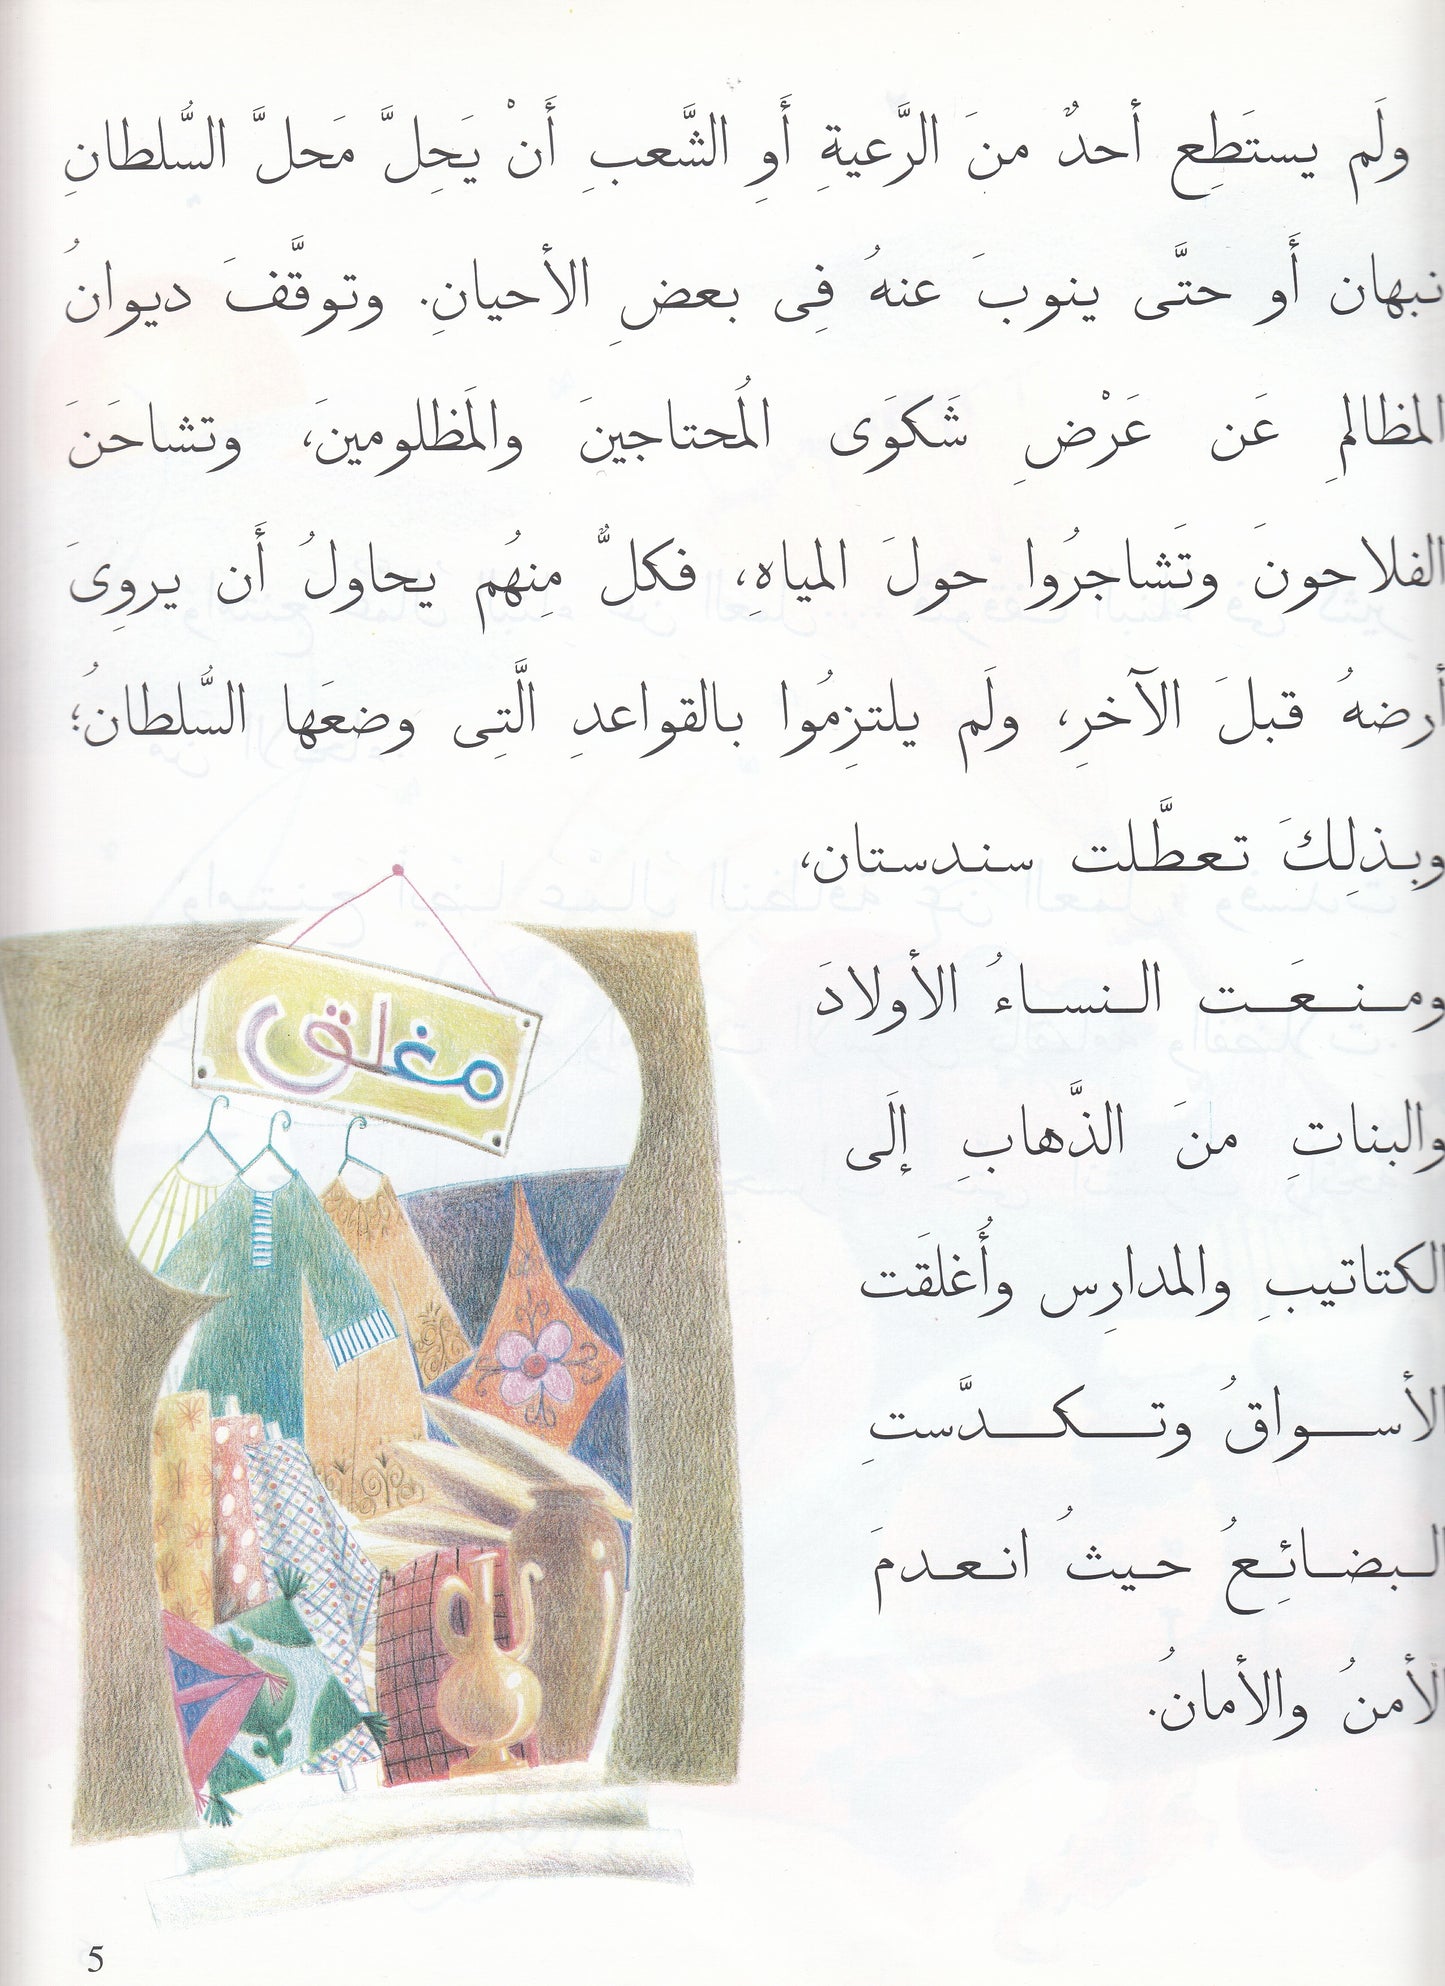 ولَم يستَطِع أحدٌ منَ الرَّعيةِ أَوِ الشَّعبِ أَنْ يَحِلَّ مَحلَّ السُّلطانِ
نبهان أَو حتَّى ينوبَ عنهُ فِى بعضِ الأحيانِ. وتوقَّفَ ديوانُ
المظالمِ عَن عَرْضِ شَكوَى المُحتاجينَ والمَظلومينَ، وتشاحَنَ
الفلاحونَ وتَشاجرُوا حولَ المياهِ، فكلٌّ مِنهُم يحاولُ أَن يروِىَ
أرضهُ قبلَ الآخرِ، ولَم يلتزِمُوا بالقواعدِ الَّتِى وضعَها السُّلطانُ؛
وبذلِكَ تعطَّلت سندستان،
ومنعَت النساءُ الأولادَ
والبناتِ منَ الذَّهابِ إلَى
الكتاتيبِ والمدارِس وأُغلقَت
الأسواقُ وتكدَّستِ
البضائِعُ حيثُ انعدمَ
الأمنُ والأمانُ.
مغلق
5